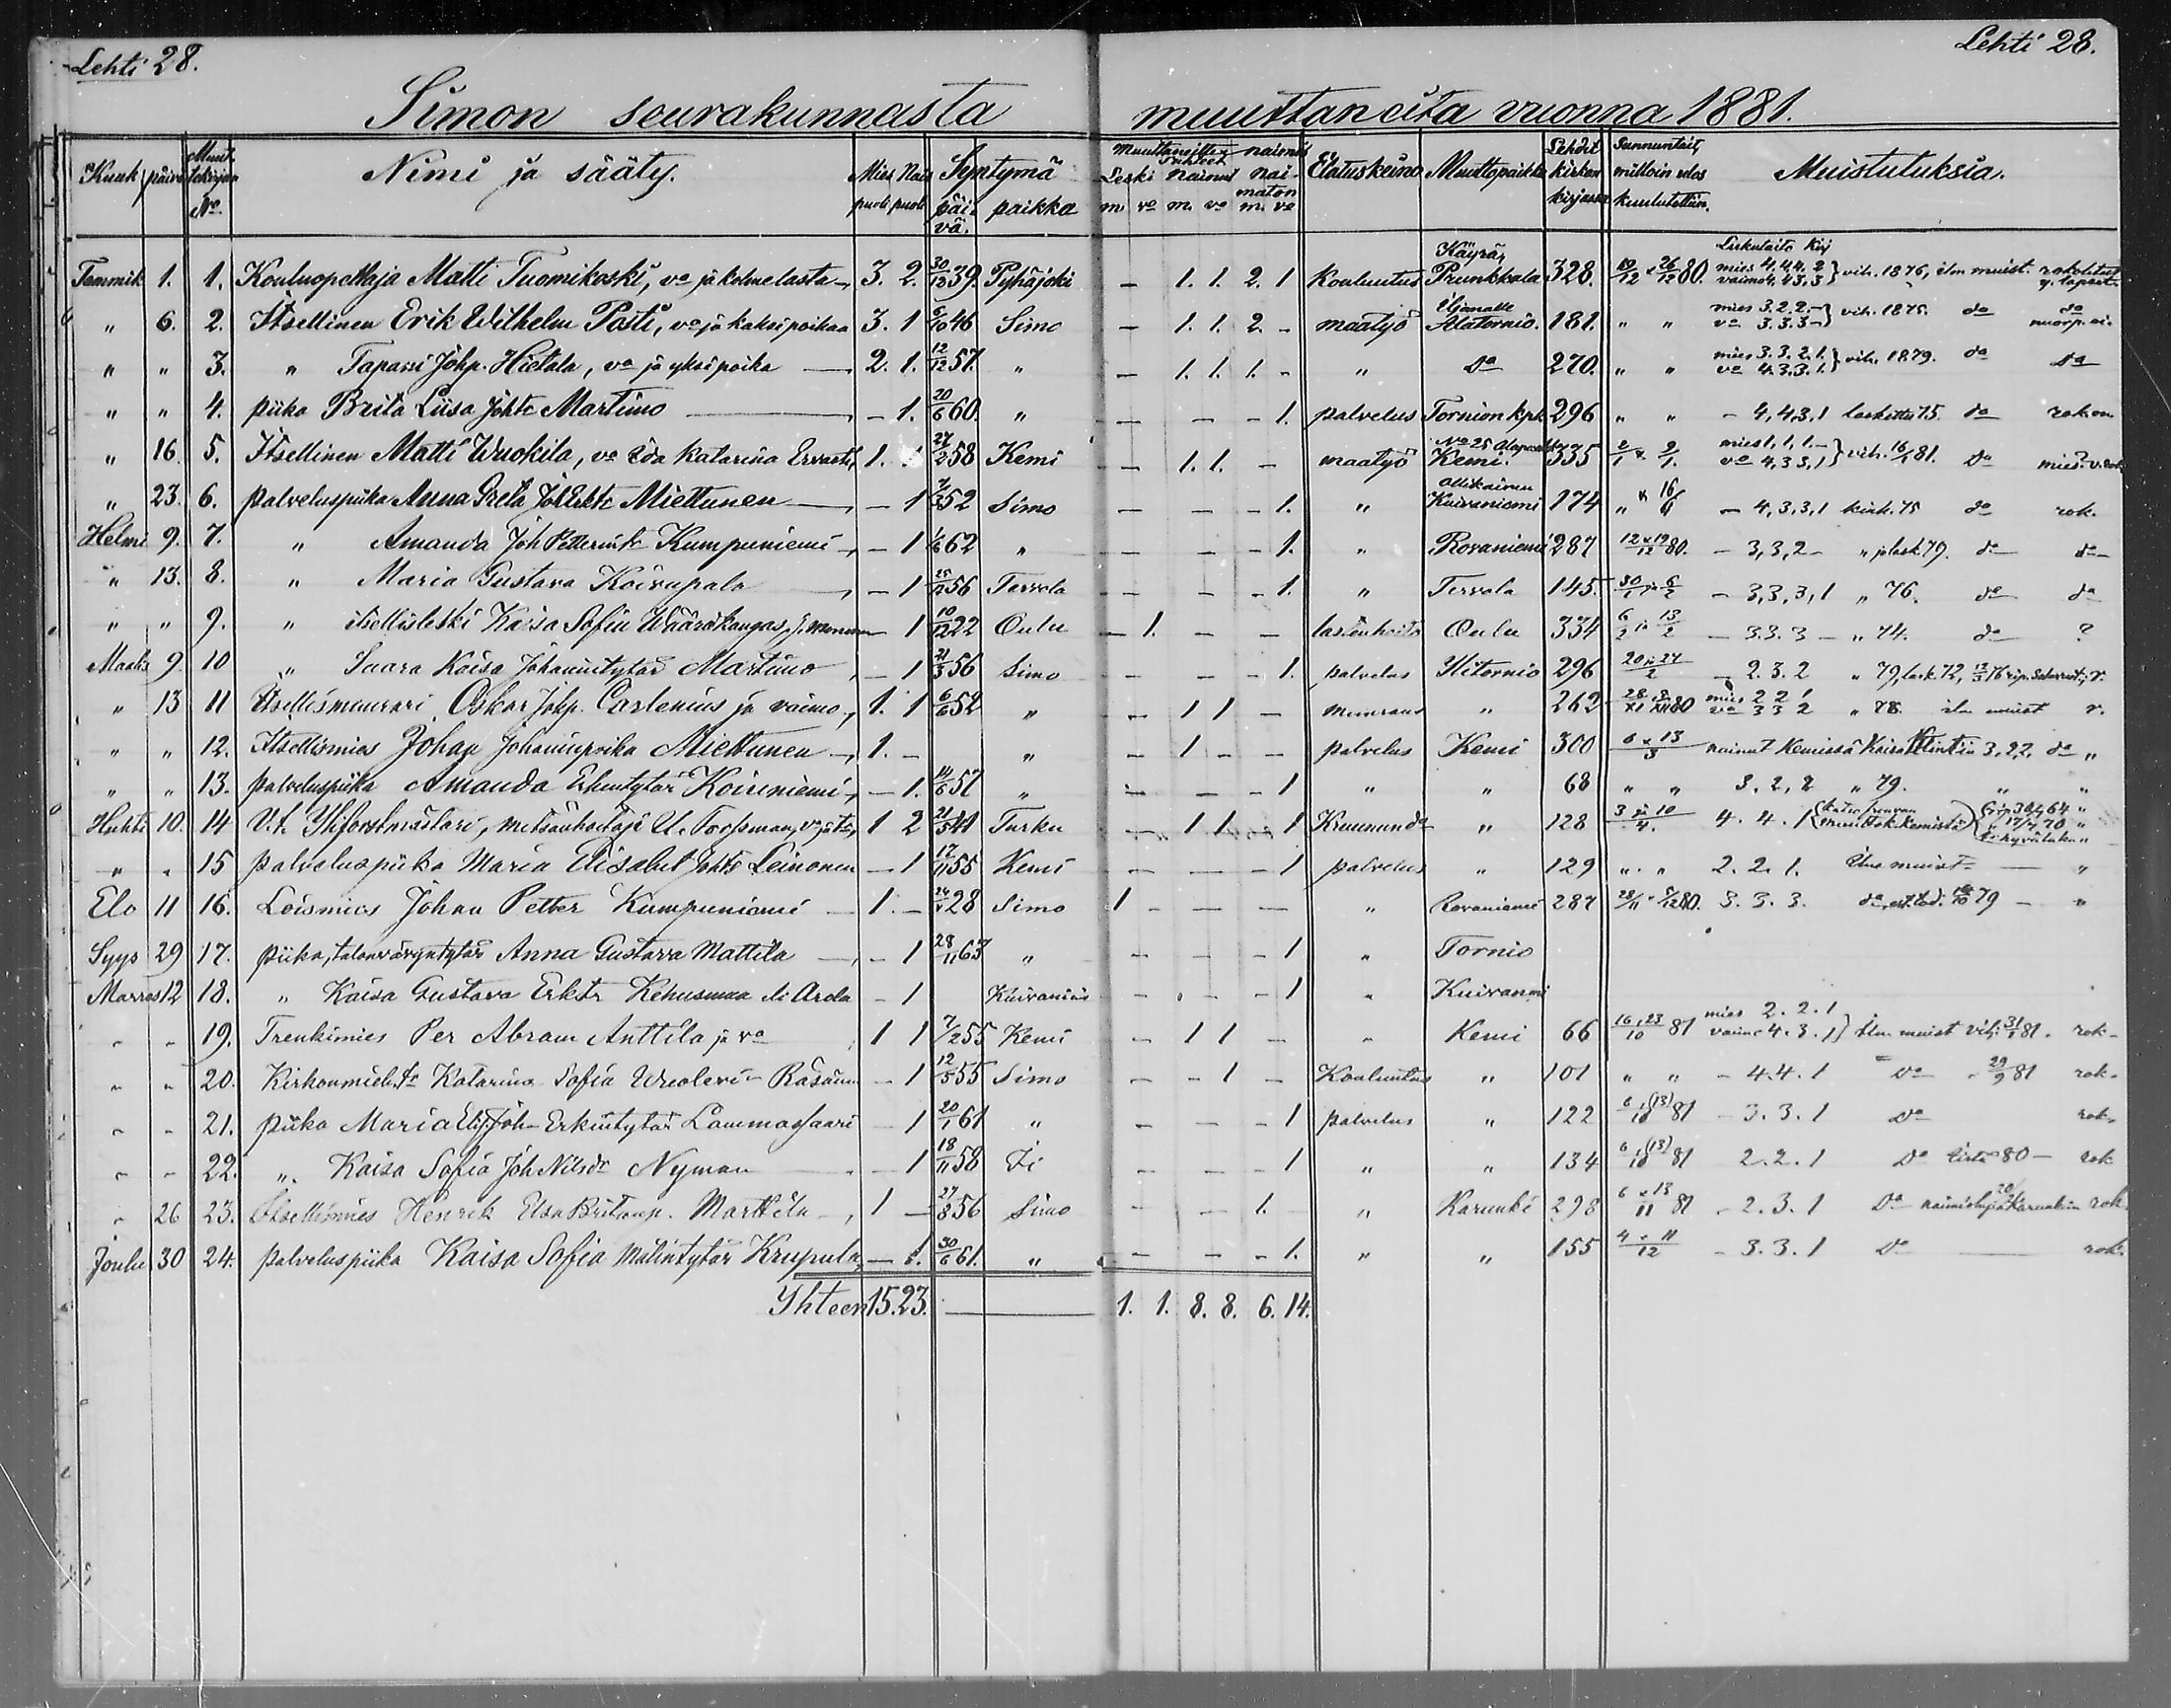 Lehti 28.
Lehti 28.
Simon seurakunnasta muuttaneita vuonna 1881.
Kuuk päivä Muut. tokirjan No. Nimi ja sääty. Mies puoli Nais puoli Syntymä päivä. paikka Muuttaneitten naimis suhteet Leski m. va Nainut m. va Naimaton m. va Elatuskeino Muuttopaikka Lehdet kirkon kirjassa Sunnuntait, milloin ulos kuulutettiin. Muistutuksia.
Tammik 1. 1. Kouluopettaja Matti Tuomikoski, va ja kolme lasta 3. 2. 30/12 39. Pyhäjoki - 1. 1. 2. 1 Kouluutus Käyrän Prunkkala 328. 19/12 x 26/12 80. Lukutaito Kirj mies 4.4.4. 2 vaimo 4. 4 3. 3 vih. 1876, ilm muist. rokolitut y. lapset
" 6. 2. Itsellinen Erik Wilhelm Posti, va ja kaksi poikaa 3. 1 5/10 46 Simo - 1. 1. 2. - maatyö Alatornio. 181. " " mies 3. 2. 2. - va 3. 3. 3 - vih. 1875. do do
" " 3. " Tapani Johp. Hietala, va ja yksi poika 2. 1. 12/12 57. " - 1. 1. 1. - " Do 270. " " mies 3. 3. 2. 1. va 4. 3. 3. 1. vih. 1879. do Da
" " 4. piika Brita Liisa Johtr Martimo - 1. 20/6 60. " - - - 1. palvelus Tornion kpk 296 " " - 4, 4, 3, 1 laskettu 75. do rok on
" 16. 5. Itsellinen Matti Wuokila, va Eda Katarina Ervasti, 1. 1 27/2 58 Kemi - 1. 1. - maatyö No 25 Kemi. 335 2/1 x 9/1. mies 1, 1, 1. - va 4, 3 3, 1 vih. 16/1 81. Do mies. v. rok
" 23. 6. palveluspiika Anna Greta Joh Erkktr Miettunen - 1 7/3 52 Simo - - - 1. " Ollikainen Kuivaniemi 174 " x 16/1 - 4, 3, 3, 1 kink. 75 do rok.
Helmi 9. 7. " Amanda Joh Petterintr Kumpuniemi - 1 1/6 62 " - - - 1. " Rovaniemi 287 12 x 19/12 80. - 3, 3, 2 - " j. lask. 79. do do
" 13. 8. " Maria Gustava Koivupalo - 1 25/2 56 Tervola - - - 1. " Tervola 145. 30/1 ja 6/2 - 3, 3, 3, 1 " 76. do da
" " 9. " itsellisleski Kaisa Sofia Määräkangas, - 1 10/12 22 Oulu - 1. - - lastenhoito Oulu 334 6/2 ja 13/2 - 3. 3. 3 - " 74. do ?
Maalis 9. 10 " Saara Kaisa Johanintytär Martimo - 1 21/3 56 Simo - - - 1. palvelus Ylitornio 296 20 ja 27/2 - 2. 3. 2 " 79, lask. 72,
" 13 11 Itsellismuurari Oskar Johp. Carlenius ja vaimo, 1. 1 6/6 52 " - 1 1 - muuraus " 262 28/XI 5/XII 80 mies 2 2 1 va 3 3 2 " 78. ilm muist r.
" " 12. Itsellismies Johan Johaninpoika Miettunen 1. - " - 1 - - palvelus Kemi 300 6 x 13/3 nainut Kemissä Kaisa Klintin 3,2,2, do "
" " 13. palveluspiika Amanda Erkintytär Koiviniemi, - 1. 14/6 57 " - - - 1 " " 68 " " 3. 2, 2 " 79. " "
Huhti 10. 14 V.t. Yliforstmästari, metsänhoitaja A. Forssman, va ja tr, 1 2 21/5 41 Turku - 1 1 - 1 Kruununda " 128 3 ja 10/4. 4. 4. 1 muuttok. Kemistä
" " 15 palveluspiika Maria Elisabet Johtr Leinonen - 1 17/11 55 Kemi - - - 1 palvelus " 129 " " 2. 2. 1. ilm muist "
Elo 11 16. Loismies Johan Petter Kumpuniemi 1. - 24/4 28 Simo 1 - - - " Rovaniemi 287 28/11 x 5/12 80. 3. 3. 3. do, est. tod. 79 - "
Syys 29 17. piika, talonvävyntytär Anna Gustava Mattila - 1 28/11 63 " - - - 1 " Tornio
Marras 12 18. " Kaisa Gustava Erktr Kehusmaa eli Arola - 1 Kuivanimi - - - 1 " Kuivanmi
" " 19. Trenkimies Per Abram Anttila ja va 1 1 7/2 55 Kemi - 1 1 - " Kemi 66 16 x 23/10 81 mies 2. 2. 1 vaimo 4. 3. 1 Ilm muist vih. 31/1 81. rok-
" " 20. Kirkonmiehtr Katarina Sofia Wuoleri - Räsänen - 1 12/5 55 Simo - - 1 - Kouluutus " 101 " " - 4. 4. 1 Do " 29/9 81 rok.
" " 21. piika Maria Elis. Joh- Erkintytär Lammassaari - 1 20/1 61 " - - - 1 palvelus " 122 6, (13)/10 81 - 3. 3. 1 Do rok.
" " 22. " Kaisa Sofia Joh Nilsdr Nyman - 1 18/11 58 Ii - - - 1 " " 134 6, (13)/10 81 2. 2. 1 Do 80 - rok
" 26 23. Itsellismies Henrik Elsa Britanp. Marttila 1 - 27/8 56 Simo - - 1. " Karunki 298 6 x 13/11 81 - 2. 3. 1 Do rok
Joulu 30 24. palveluspiika Kaisa Sofia Matintytär Krupula - 1. 30/6 61. " - - - 1. " " 155 4 x 11/12 - 3. 3. 1 Do rok.
Yhteen 15. 23. 1. 1. 8. 8. 6. 14.